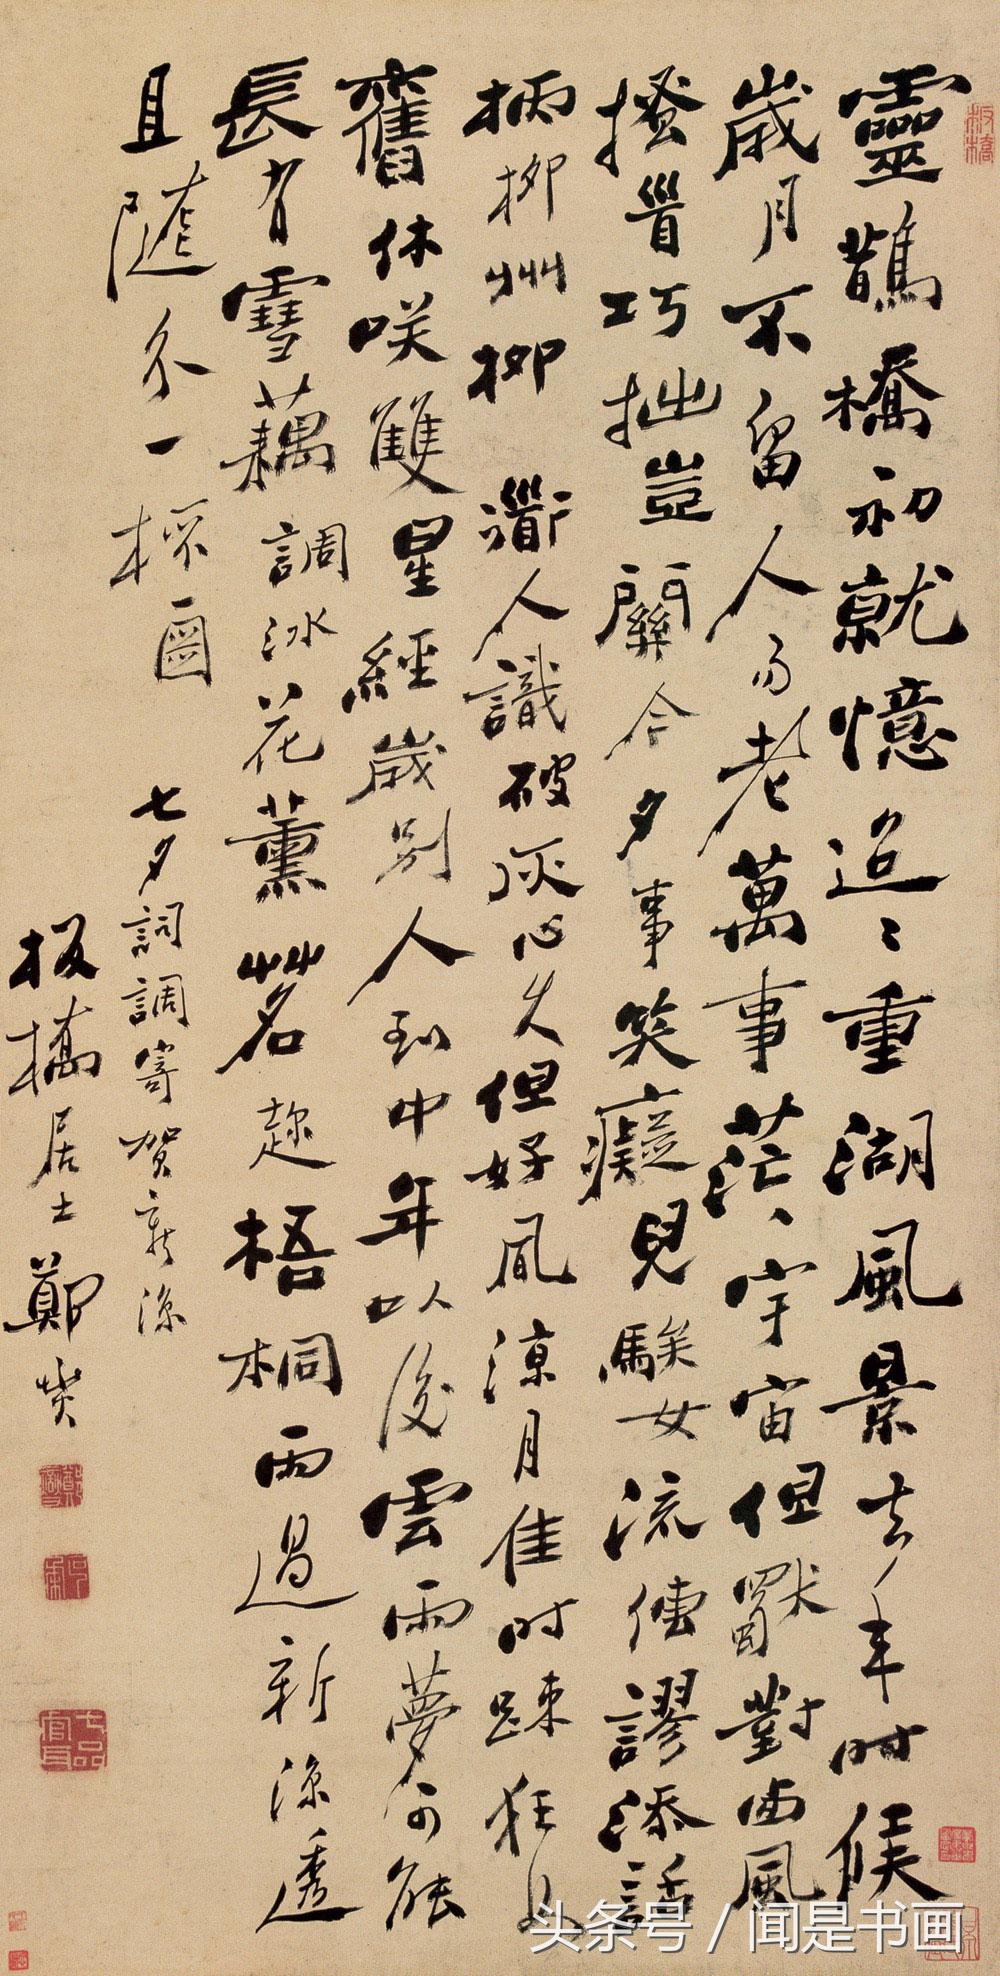 靈鵲橋初就憶迢〻重湖風景去年時候
歲月不留人易老萬事茫〻宇宙但獨對西風
搔首巧拙豈關今夕事笑癡兒騃女流傳謬添話
柄柳州柳 道人識破灰心久但好風涼月佳時疎狂如
舊休咲雙星經歲別人到中年以後雲雨夢可能
長有雪藕調冰花薰茗趂梧桐雨過新涼透
且隨分一杯
七夕詞調寄賀新涼
板橋居士鄭燮
板橋
七品官耳
头条号 / 闻是书画